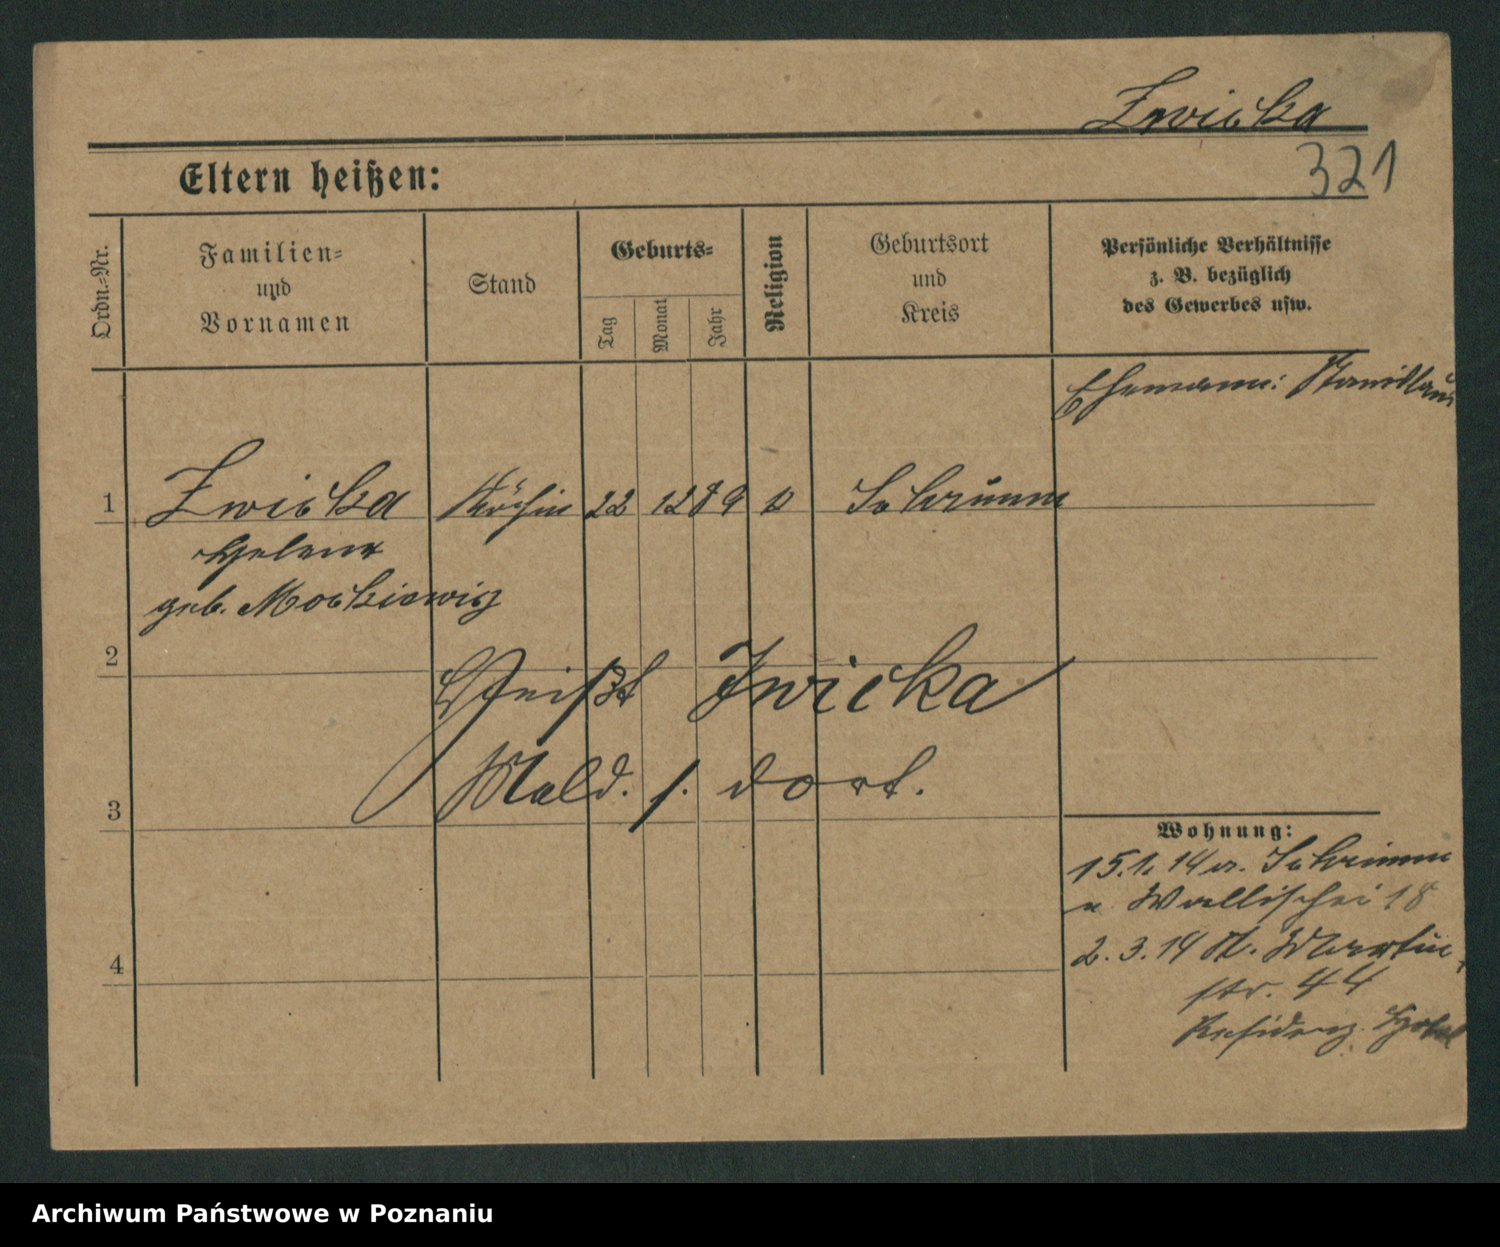 Zwicka
321
Eltern heißen:
Ordn.-Nr.
Familien-
und
Vornamen
Stand
Geburts-
Tag
Monat
Jahr
Religion
Geburtsort
und
Kreis
Persönliche Verhältnisse
z. B. bezüglich
des Gewerbes usw.
Ehemann: Stanislaus
1 Zwicka Köchin 22 12 89 k Schrimm
Helene
geb. Mockiewicz
2
Heißt Zwicka
Meld. s. dort.
3
Wohnung:
15.1.14 a. Schrimm
n. Wallischei 18
2.3.14 St. Martin-
4
str. 44
Residenz Hotel
Archiwum Państwowe w Poznaniu